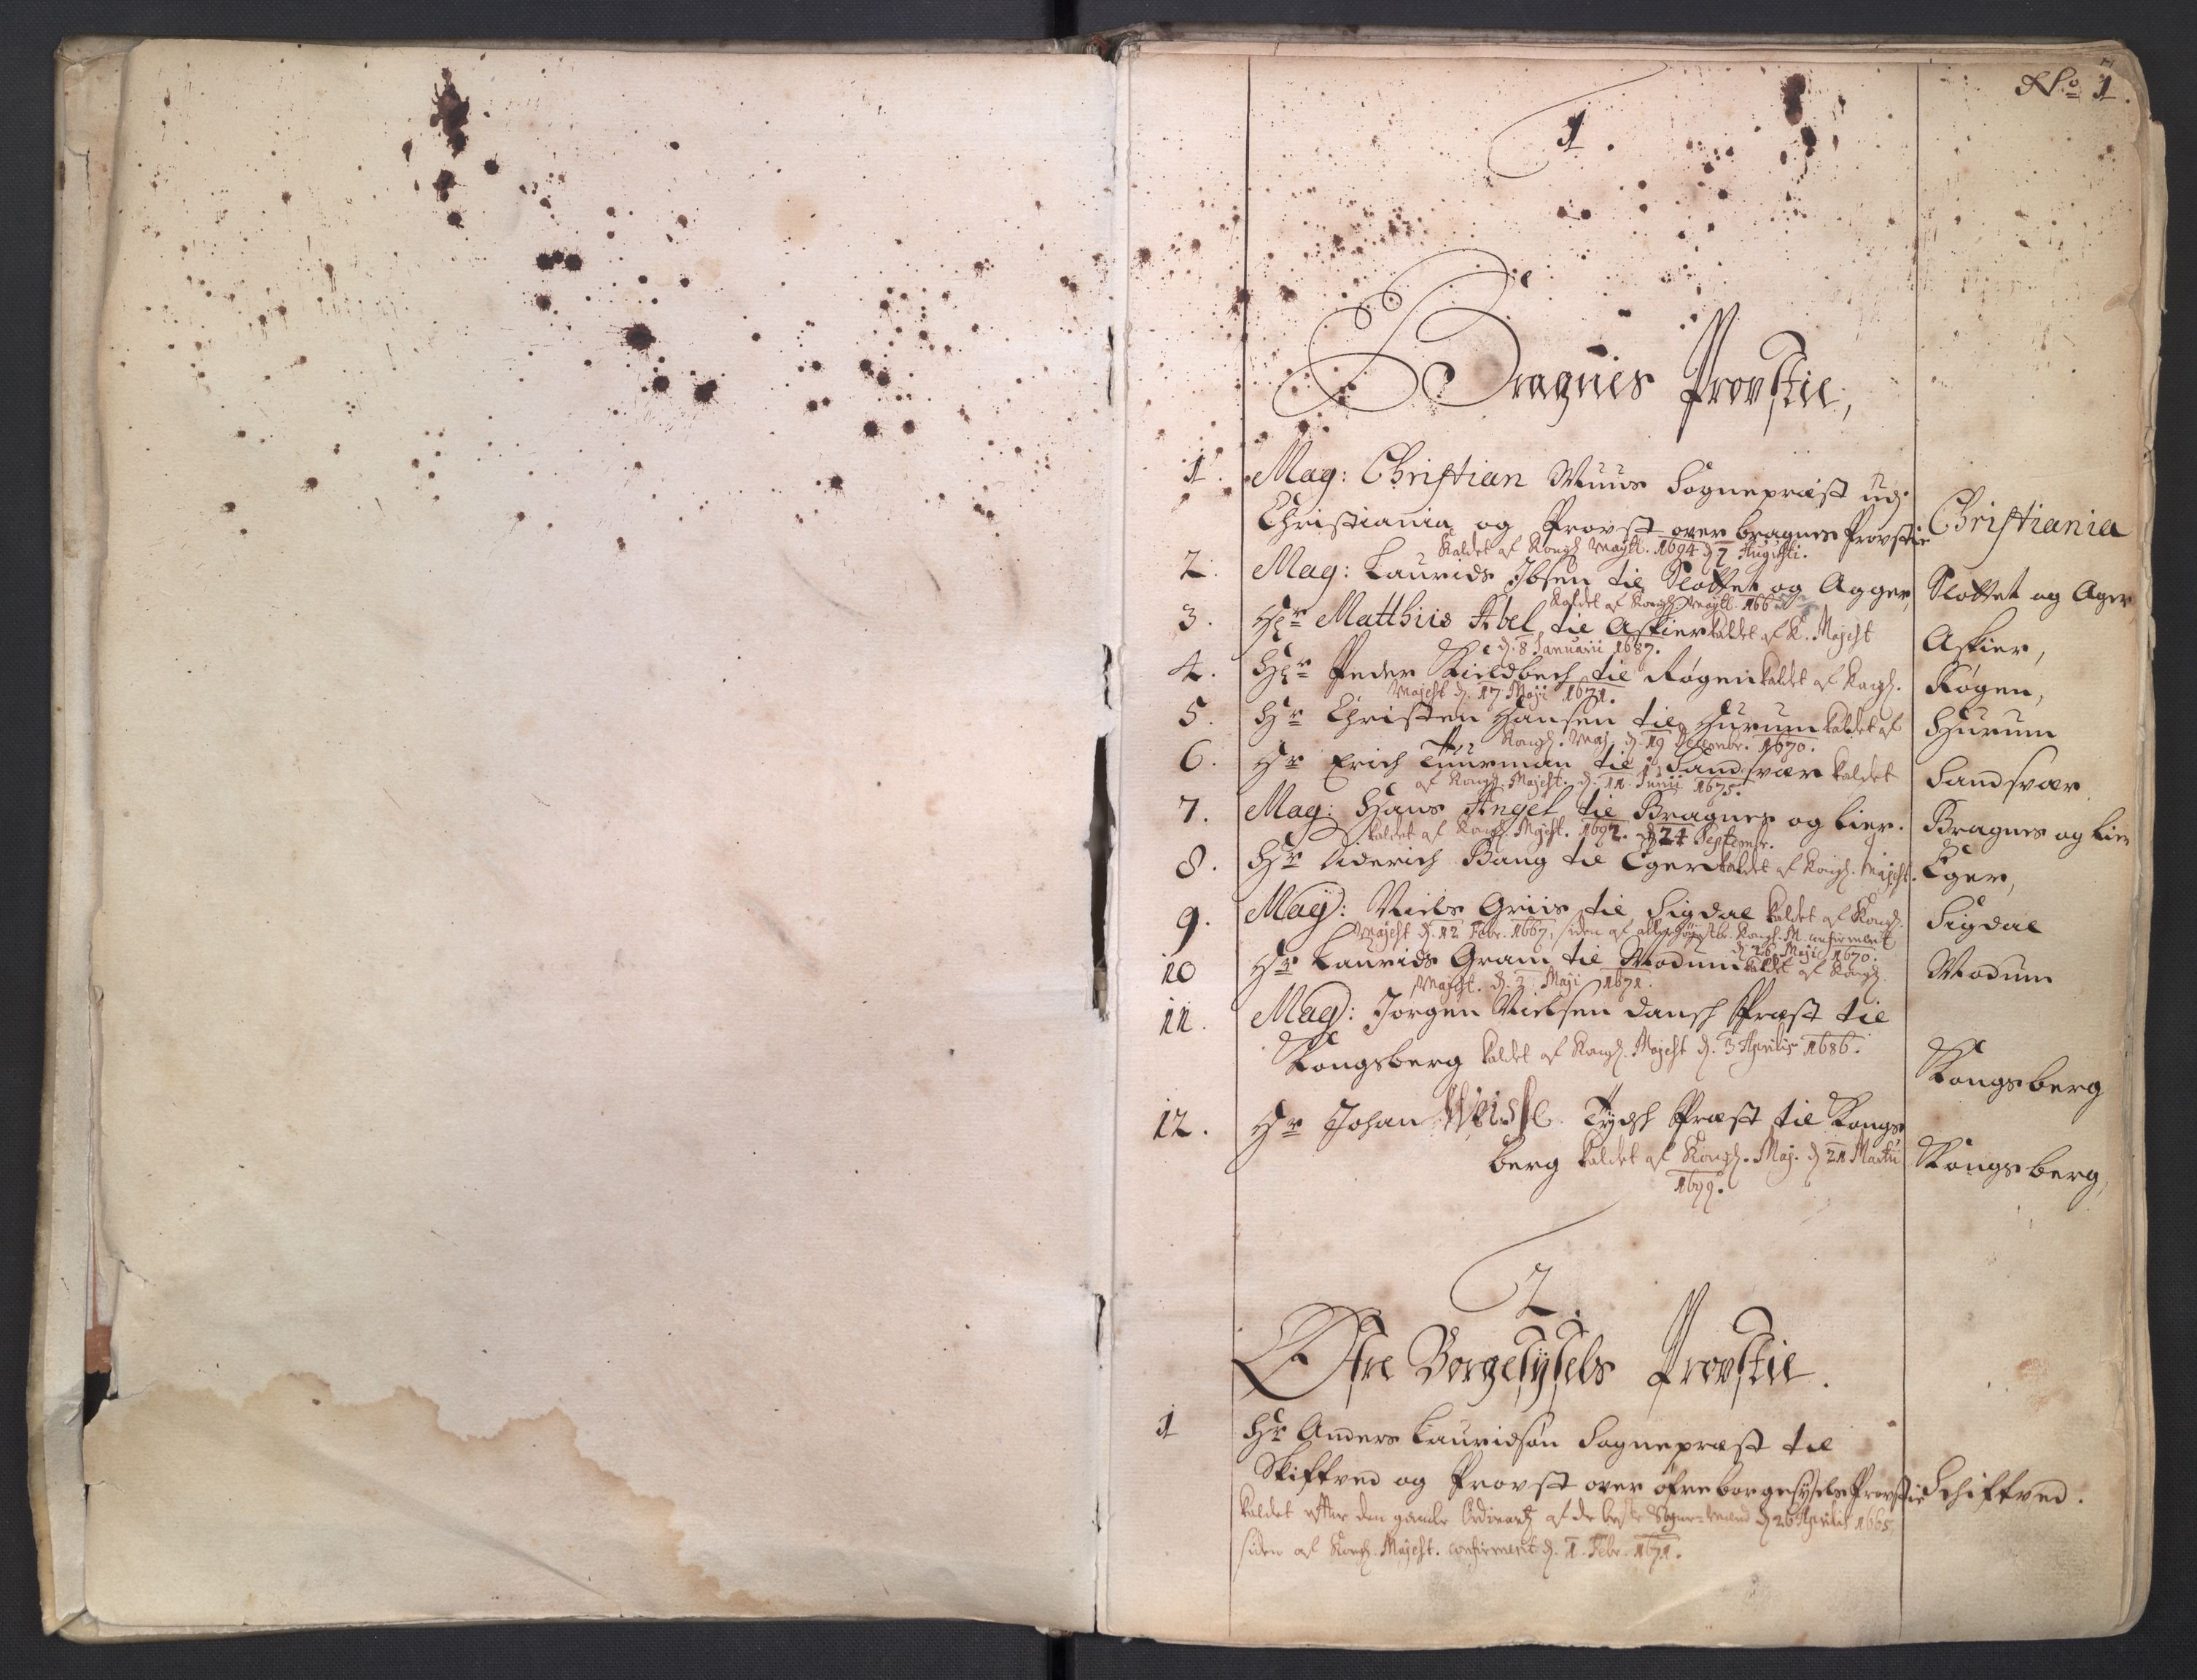 No 1.
1.
Bragnes Provstie,
1. Mag: Christian Muus Sognepræst udj Christiania
Christiania og Provst over bragnes Provstie
Kaldet af Kongl Maytt. 1694 d 7 Augusti.
2. Mag: Laurids Ibsen til Slottet og Agger, Slottet og Ager
Kaldet af Kongl Maytt. 166
3. Hr Matthiis Abel til Askier kaldet af K. Majest Askier,
d. 8 Januarii 1687.
4. Hr Peder Kieldbech til Røgen kaldet af Kongl. Røgen,
Majest d. 17 Maji 1671.
5. Hr Christen Hansen til Hurum kaldet af Hurum
Kongl. Maj. d. 19 Decembr. 1670.
6. Hr Erich Tuurman til Sandsvær kaldet Sandsvær
af Kongl. Majest. d. 11 Junii 1675.
7. Mag: Hans Angel til Bragnes og Lier. Bragnes og Lier
kaldet af Kongl. Majest. 1692. d 24 Septembr.
8. Hr Diderich Bang til Eger kaldet af Kongl. Majest. Eger,
9. Mag: Niels Griis til Sigdal kaldet af Kongl. Sigdal
Majest d. 12 Febr. 1667, siden af allerhøystbr. Kongl. M. confirmerit
d 26 Maji 1670.
10 Hr Laurids Gram til Modum kaldet af Kongl. Modum
Majest. d. 2 Maji 1671.
11. Mag: Jørgen Nielsen dansk Præst til
Kongsberg kaldet af Kongl. Majest d. 3 Aprilis 1686. Kongsberg
12. Hr Johan Weisse Tydsk Præst til Kongs
berg kaldet af Kongl. Maj. d 21 Martii Kongsberg,
1699.
2
Øfre Borgesysels Provstie.
1 Hr Anders Lauridsøn Sognepræst til
Skiftved og Provst over øfreborgesysels Provstie Schiftved.
kaldet efter den gamle Ordinantz af de beste Sogne-Mænd d 26 Aprilis 1665
siden af Kongl. Majest. confirmerit d. 1. Febr. 1671.